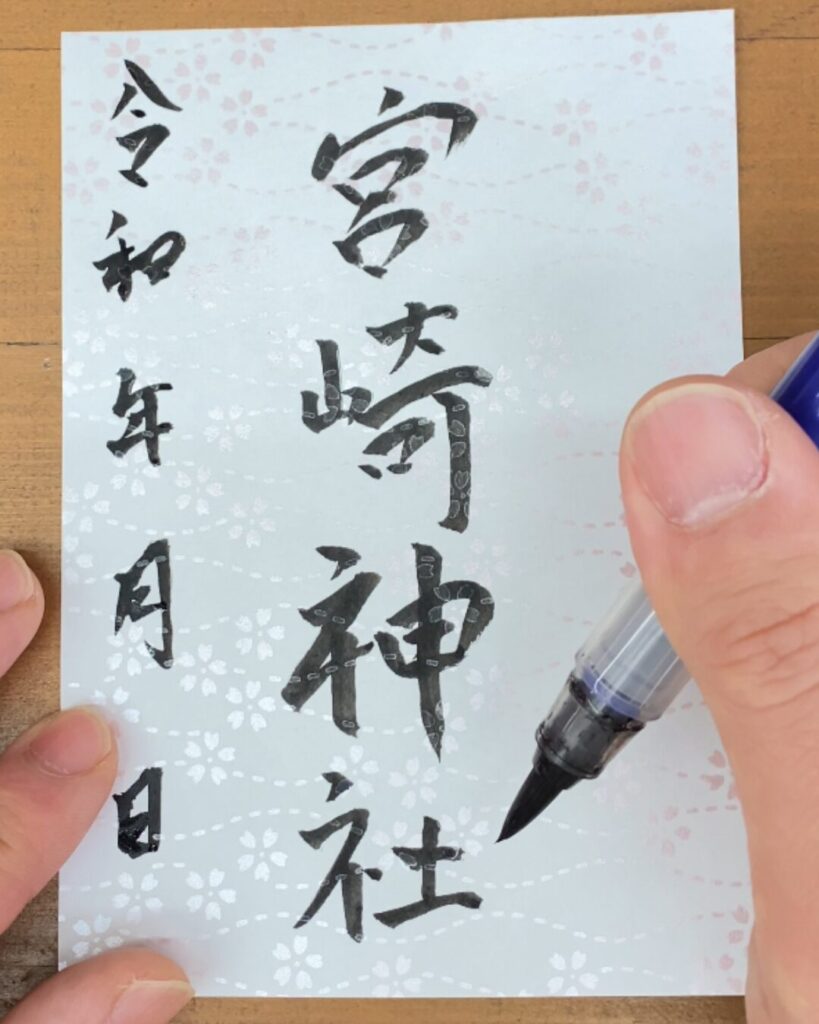 宮崎神社
令和年月日